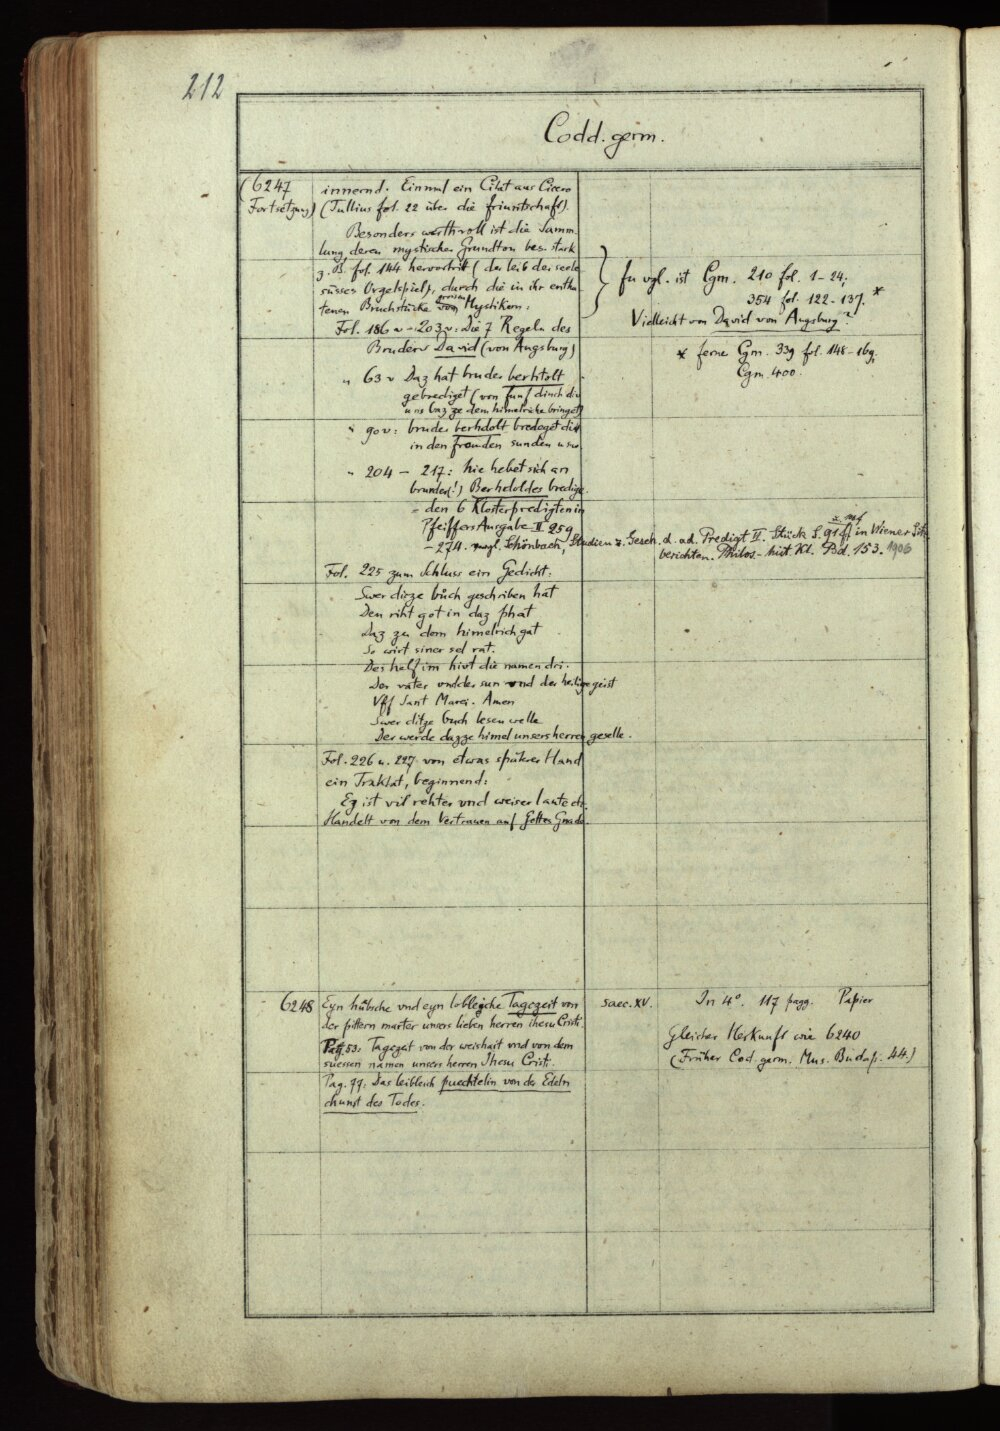 212
Codd. germ.
(6247
Fortsetzung)
innernd. Einmal ein Citat aus Cicero
(Tullius fol. 22 über die friuntschaft).
Besonders werthvoll ist die Samm-
lung deren mystischer Grundton bes. stark
z. B. fol. 144 hervortritt (der leib der seele
süsses Orgelspiel), durch die in ihr entha
tenen Bruchstücke von Mystikern:
Fol. 186v - 203v: Die 7 Regeln des
Bruders David (von Augsburg)
" 63v Daz hat bruder berhtolt
gebrediget (von funf dinch die
uns baz ze dem himelriche bringet)
" 90v: bruder berhdolt brediget dise
in den fremden sunden usw.
" 204 - 217: hie hebet sich an
bruuder(!) Berhdoldes bredige
= den 6 Klosterpredigten in
Pfeiffers Ausgabe II 259
- 274. vgl. Schönbach, Studien z. Gesch. d. ad. Predigt II. Stück S. 91 ff. in Wiener Sitz
berichten. Philos.-hist. Kl. Bd. 153. 1906
fu vgl. ist Cgm. 210 fol. 1-24,
354 fol. 122-137. *
Vielleicht von David von Augsburg?
* ferner Cgm. 339 fol. 148-169,
Cgm. 400.
Fol. 225 zum Schluss ein Gedicht:
Swer dirze bůch geschriben hat
Den riht got in daz phat
Daz zu dem himelrich gat
So wirt siner sel rat.
Des helf im hivt die namen dri.
Der vater vnd der sun vnd der heilige geist
Vff Sant Marci. Amen
Swer ditze buch lesen welle
Der werde dazze himel unsers herren geselle.
Fol. 226 u. 227 von etwas späterer Hand
ein Traktat, beginnend:
Ez ist vil rehter vnd weiser laute di.
Handelt von dem Vertrauen auf Gottes Gnade.
6248
Eyn hůbsche vnd eyn lobleiche Tagczeit von
der pittern marter unsers lieben herren ihesu Cristi.
Pag. 53: Tagczat von der weishait vnd von dem
suessen namen unsers herren Jhesu Cristi.
Pag. 77: Das leibleich puechelin von der Edeln
chunst des Todes.
saec. XV.
In 4°. 117 pagg. Papier
Gleicher Herkunft wie 6240
(Früher Cod. germ. Mus. Budap. 44.)